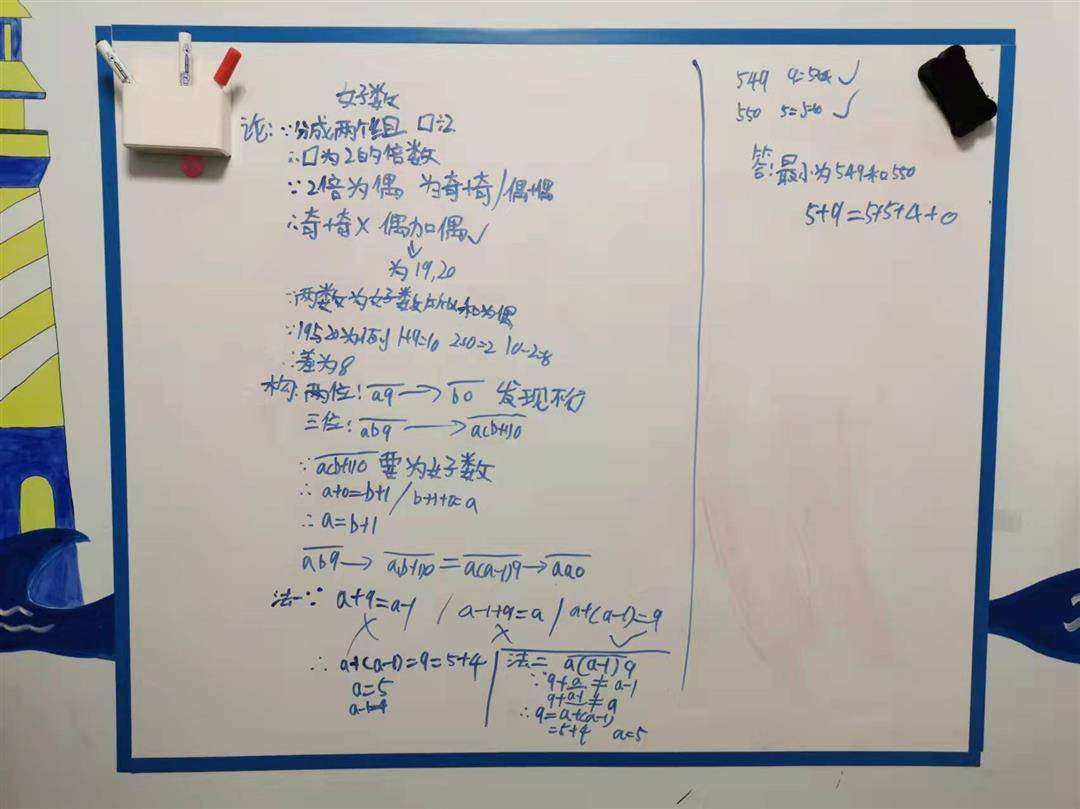 好数
论:∵分成两个组 口÷2
∴口为2的倍数
∵2倍为偶 为奇+奇/偶+偶
∴奇+奇× 偶加偶✓
↓
为19,20
∵两数为好数所以和为偶
∵19与20为例 1+9=10 2+0=2 10-2=8
∴差为8
构:两位:a9→b0 发现不行
三位:ab9→a(b+1)0
∵a(b+1)0要为好数
∴a+0=b+1/b+1+0=a
∴a=b+1
ab9→a(b+1)0=a(a-1)9→aa0
法一∵ a+9=a-1 / a-1+9=a / a+(a-1)=9
× × ✓
∴a+(a-1)=9=5+4
a=5
a-1=4
法二 a(a-1)9
∵9+a≠a-1
9+a-1≠a
∴9=a+(a-1)
=5+4 a=5
549 9=5+4 ✓
550 5=5+0 ✓
答:最小为549和550
5+9=5+5+4+0